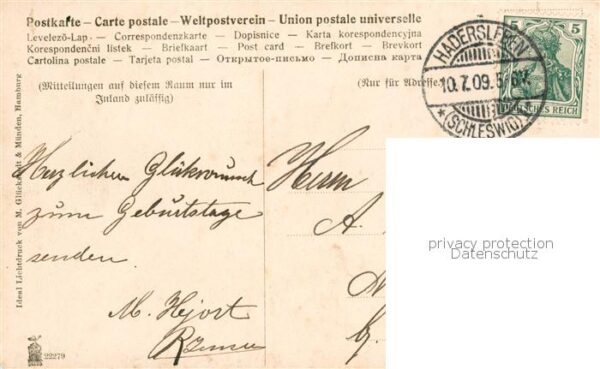 Postkarte – Carte postale – Weltpostverein – Union postale universelle
Levelező-Lap – Correspondenzkarte – Dopisnice – Karta korespondencyjna
Korespondenční listek – Briefkaart – Post card – Brefkort – Brevkort
Cartolina postale – Tarjeta postal – Открытое-письмо – Дописна карта
(Mitteilungen auf diesem Raum nur im
Inland zulässig)
(Nur für Adresse
5 5
DEUTSCHES REICH
HADERSLEBEN
10.7.09.5-6N.
* (SCHLESWIG) *
Ideal Lichtdruck von M. Glückstadt & Münden, Hamburg
Herzlichen Glückwunsch
zum Geburtstage
senden
M. Hjort
Herrn
A.
22279
privacy protection
Datenschutz